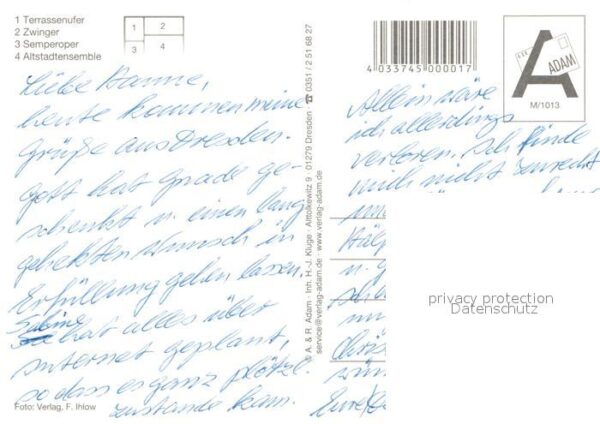 1 Terrassenufer
2 Zwinger
3 Semperoper
4 Altstadtensemble
1 2
3 4
Liebe Hanne,
heute kommen meine
Grüße aus Dresden.
Gott hat Grade ge-
schenkt u. einen lang
gehegten Wunsch in
Erfüllung gehen lassen.
Sabine
hat alles über
Internet geplant,
so dass es ganz plötzl.
zustande kam.
Foto: Verlag, F. Ihlow
© A. & R. Adam · Inh. H.-J. Kluge · Alttolkewitz 9 · 01279 Dresden ☎ 0351 / 2 51 68 27
service@verlag-adam.de · www.verlag-adam.de
4 033745 000017
A
ADAM
M/1013
Allein wäre
ich allerdings
verloren. Ich finde
mich nicht zurecht
u. g
Chris
wün
Eure
privacy protection
Datenschutz